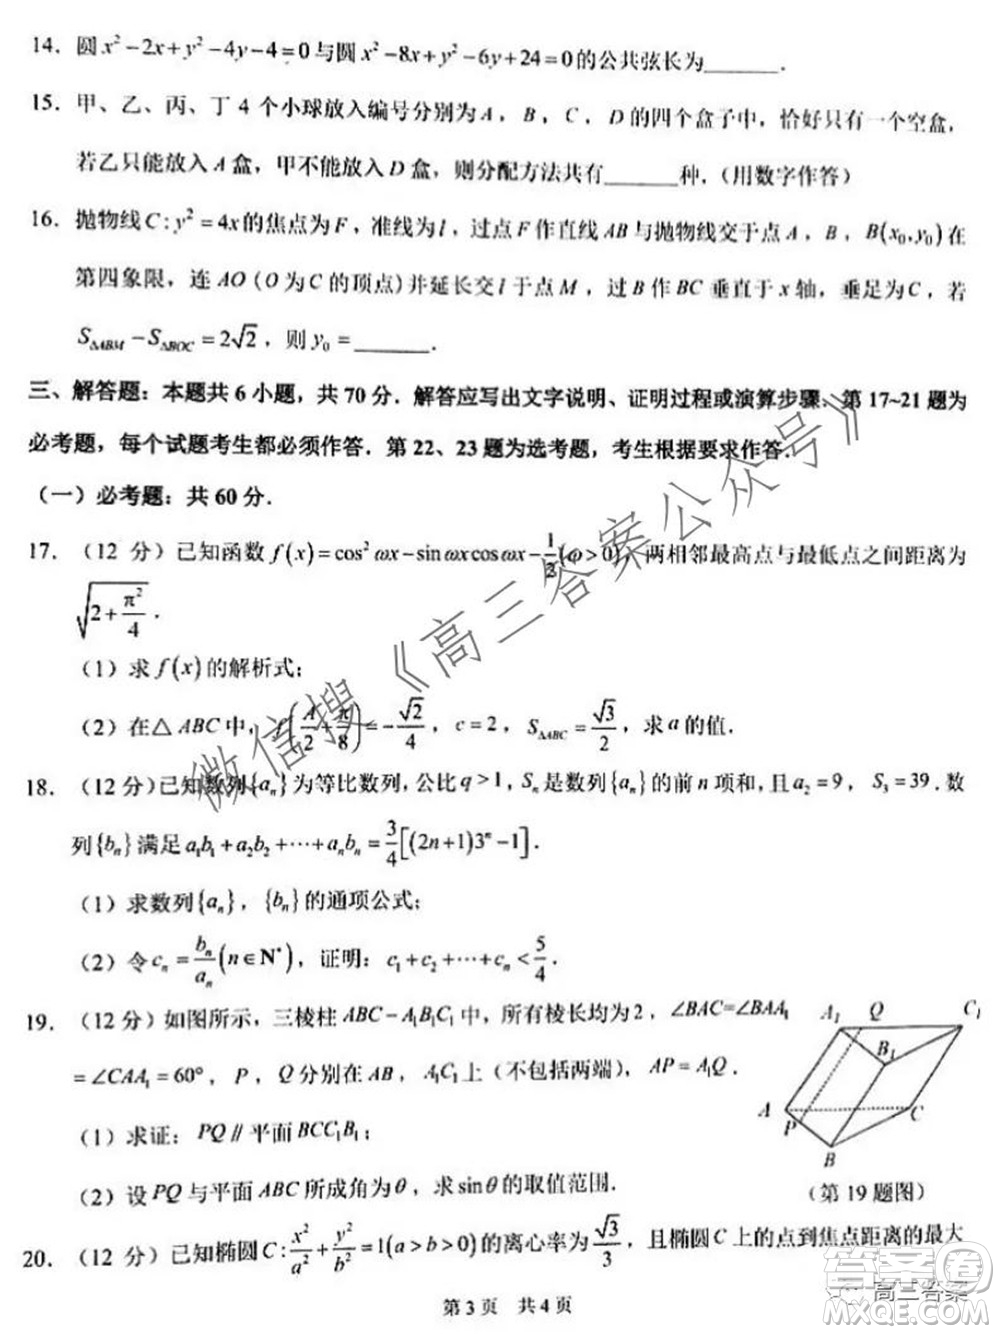 14. 圆 x²-2x+y²-4y-4=0 与圆 x²-8x+y²-6y+24=0 的公共弦长为______.
15. 甲、乙、丙、丁 4 个小球放入编号分别为 A, B, C, D 的四个盒子中,恰好只有一个空盒,
若乙只能放入 A 盒,甲不能放入 D 盒,则分配方法共有______种,(用数字作答)
16. 抛物线 C: y²=4x 的焦点为 F,准线为 l,过点 F 作直线 AB 与抛物线交于点 A, B, B(x₀,y₀) 在
第四象限,连 AO (O 为 C 的顶点) 并延长交 l 于点 M,过 B 作 BC 垂直于 x 轴,垂足为 C,若
S△ABM - S△BOC = 2√2,则 y₀ = ______.
三、解答题:本题共 6 小题,共 70 分.解答应写出文字说明、证明过程或演算步骤、第 17~21 题为
必考题,每个试题考生都必须作答.第 22、23 题为选考题,考生根据要求作答.
(一)必考题:共 60 分.
17. (12 分)已知函数 f(x)=cos²ωx-sinωxcosωx-1/2(ω>0),两相邻最高点与最低点之间距离为
√(2+π²/4).
(1)求 f(x) 的解析式;
(2)在△ABC 中, f(A/2+π/8)=-√2/4, c=2, S△ABC=√3/2,求 a 的值.
18. (12 分)已知数列{aₙ}为等比数列,公比 q>1, Sₙ 是数列{aₙ}的前 n 项和,且 a₂=9, S₃=39.数
列{bₙ}满足 a₁b₁+a₂b₂+⋯+aₙbₙ=3/4[(2n+1)3ⁿ-1].
(1)求数列{aₙ},{bₙ}的通项公式;
(2)令 cₙ=bₙ/aₙ(n∈N*),证明: c₁+c₂+⋯+cₙ<5/4.
19. (12 分)如图所示,三棱柱 ABC-A₁B₁C₁ 中,所有棱长均为 2, ∠BAC=∠BAA₁
=∠CAA₁=60°, P, Q 分别在 AB, A₁C₁ 上(不包括两端), AP=A₁Q.
(1)求证: PQ∥平面 BCC₁B₁;
(2)设 PQ 与平面 ABC 所成角为 θ,求 sinθ 的取值范围.
A₁ Q C₁
B₁
A P C
B
(第 19 题图)
20. (12 分)已知椭圆 C: x²/a²+y²/b²=1(a>b>0) 的离心率为 √3/3,且椭圆 C 上的点到焦点距离的最大
第 3 页 共 4 页
微信搜《高三答案公众号》
高三答案
答案卷
MXQE.COM